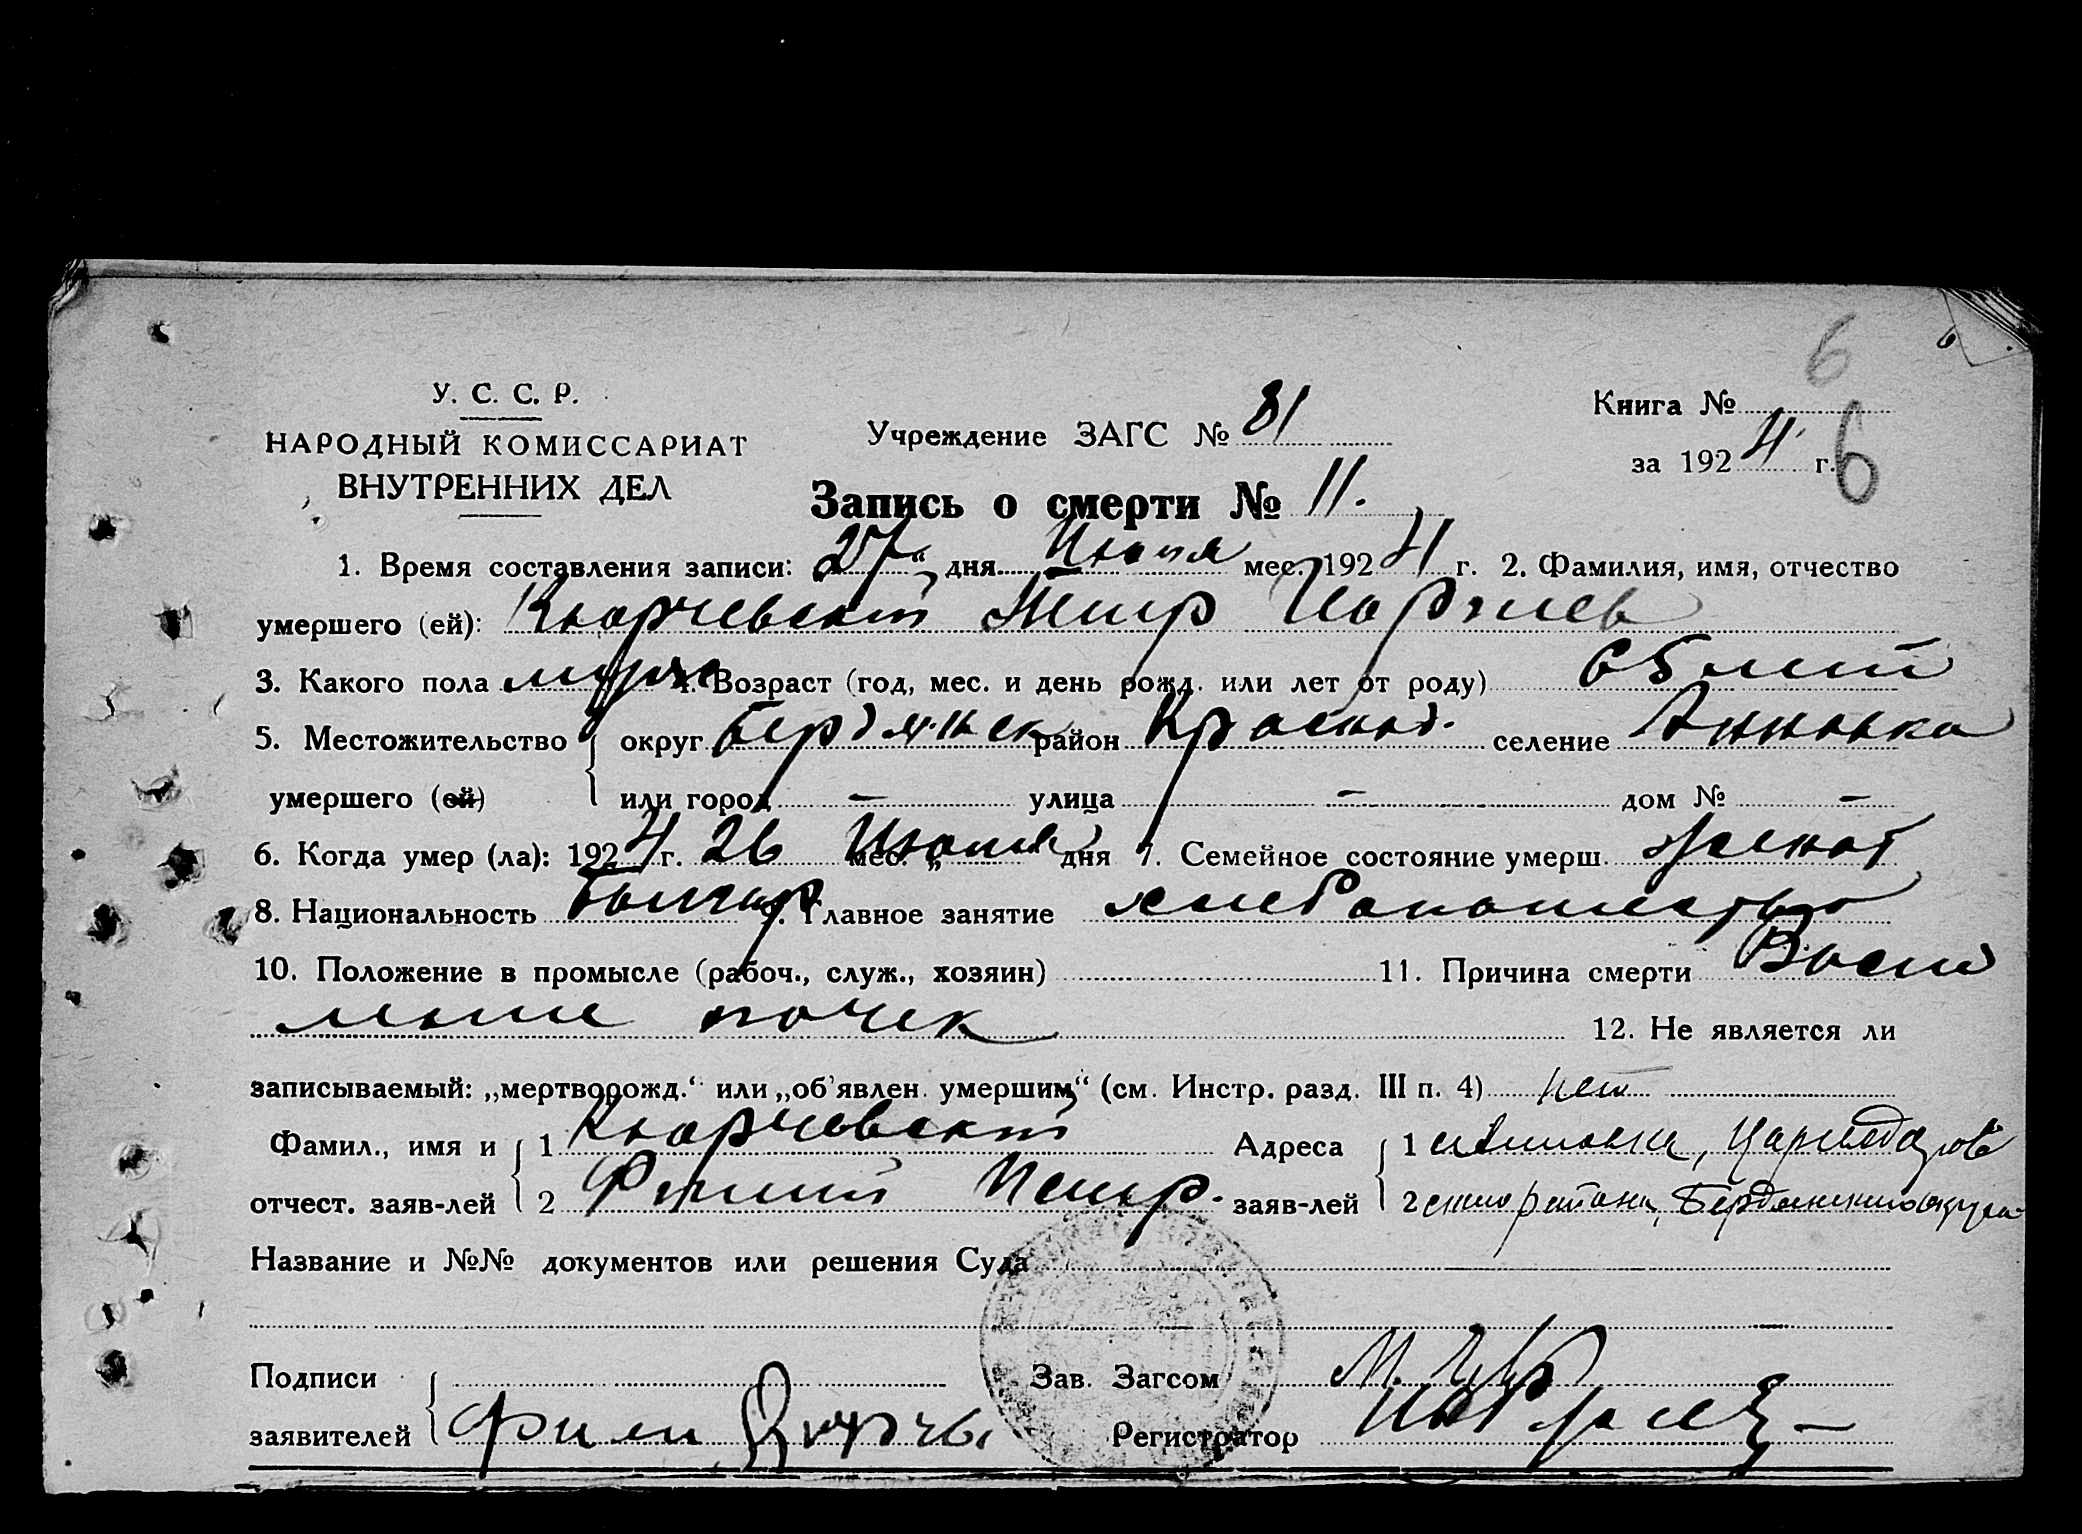 6 6
У. С. С. Р.
НАРОДНЫЙ КОМИССАРИАТ
ВНУТРЕННИХ ДЕЛ
Учреждение ЗАГС № 81
Книга №
за 1924 г. 6
Запись о смерти № 11.
1. Время составления записи: „27“ дня мес. 1924 г. 2. Фамилия, имя, отчество
умершего (ей): Кюрчевский
3. Какого пола муж 4. Возраст (год, мес. и день рожд. или лет от роду) 65 лет
5. Местожительство округ Бердянск район селение Анновка
умершего (ей) или город – улица – дом № –
6. Когда умер (ла): 1924 г. 26 мес. „ “ дня 7. Семейное состояние умерш. женат
8. Национальность Болгар 9. Главное занятие хлебопашество
10. Положение в промысле (рабоч., служ., хозяин) 11. Причина смерти Воспа
ление почек 12. Не является ли
записываемый: „мертворожд.“ или „об'явлен. умершим“ (см. Инстр. разд. III п. 4) нет
Фамил., имя и 1 Кюрчевский Адреса 1
отчест. заяв-лей 2 заяв-лей 2 района, Бердянского округа
Название и №№ документов или решения Суда
Подписи Зав. Загсом
заявителей Регистратор